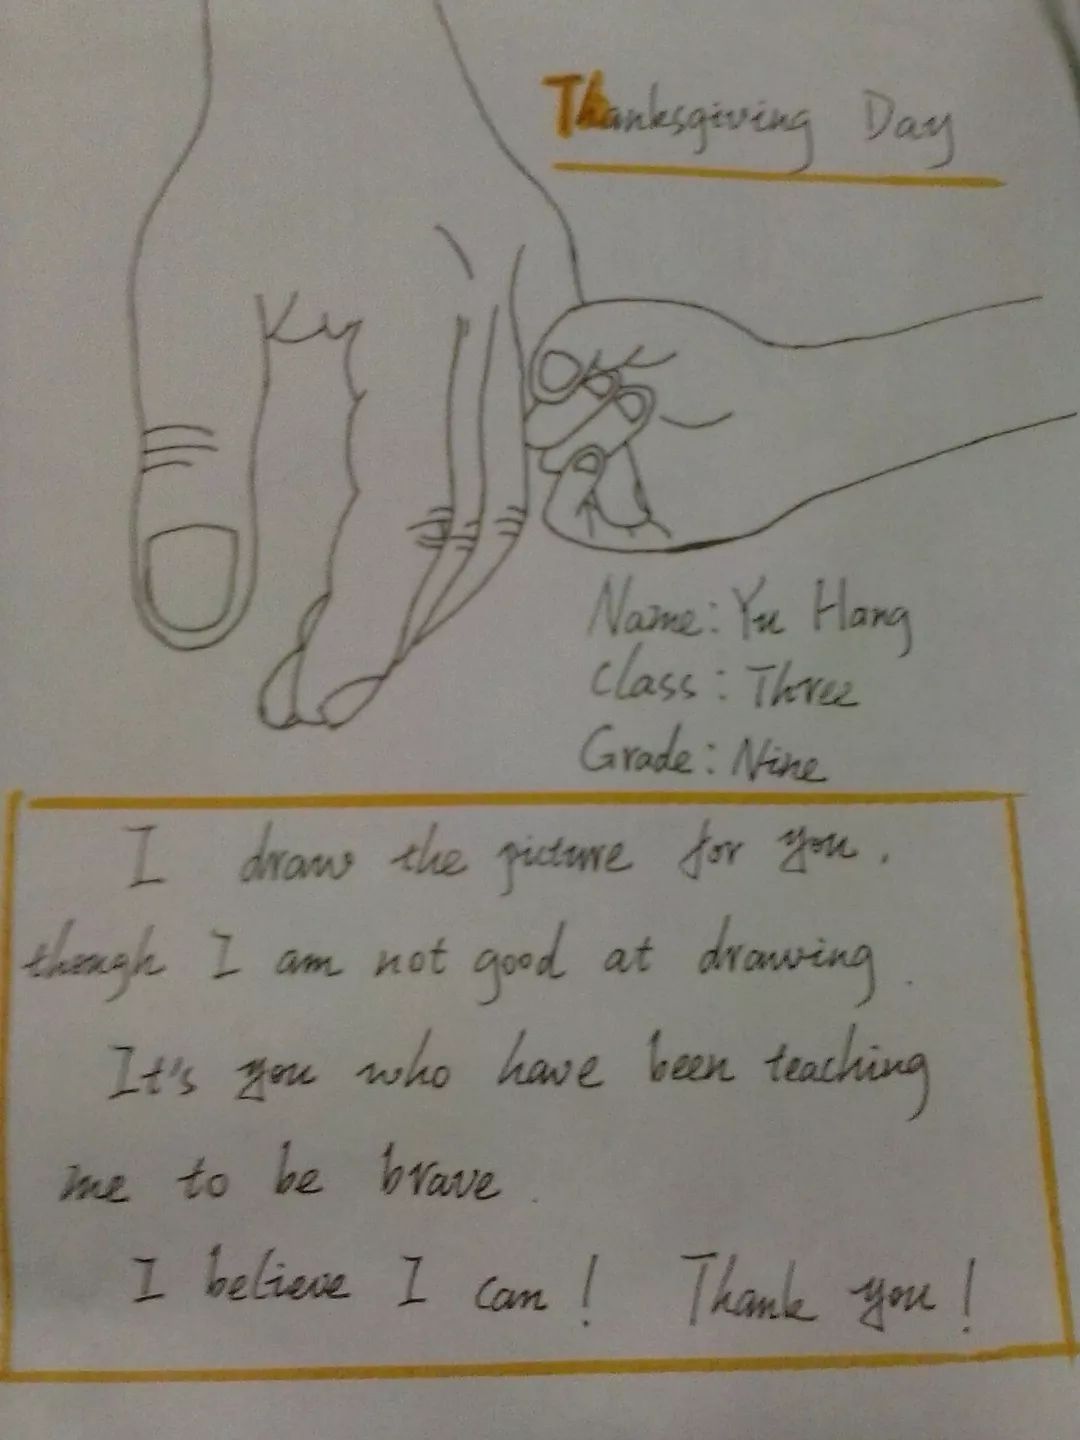 Thanksgiving Day
Name: Yu Hang
Class: Three
Grade: Nine
I draw the picture for you,
though I am not good at drawing.
It's you who have been teaching
me to be brave.
I believe I can! Thank you!